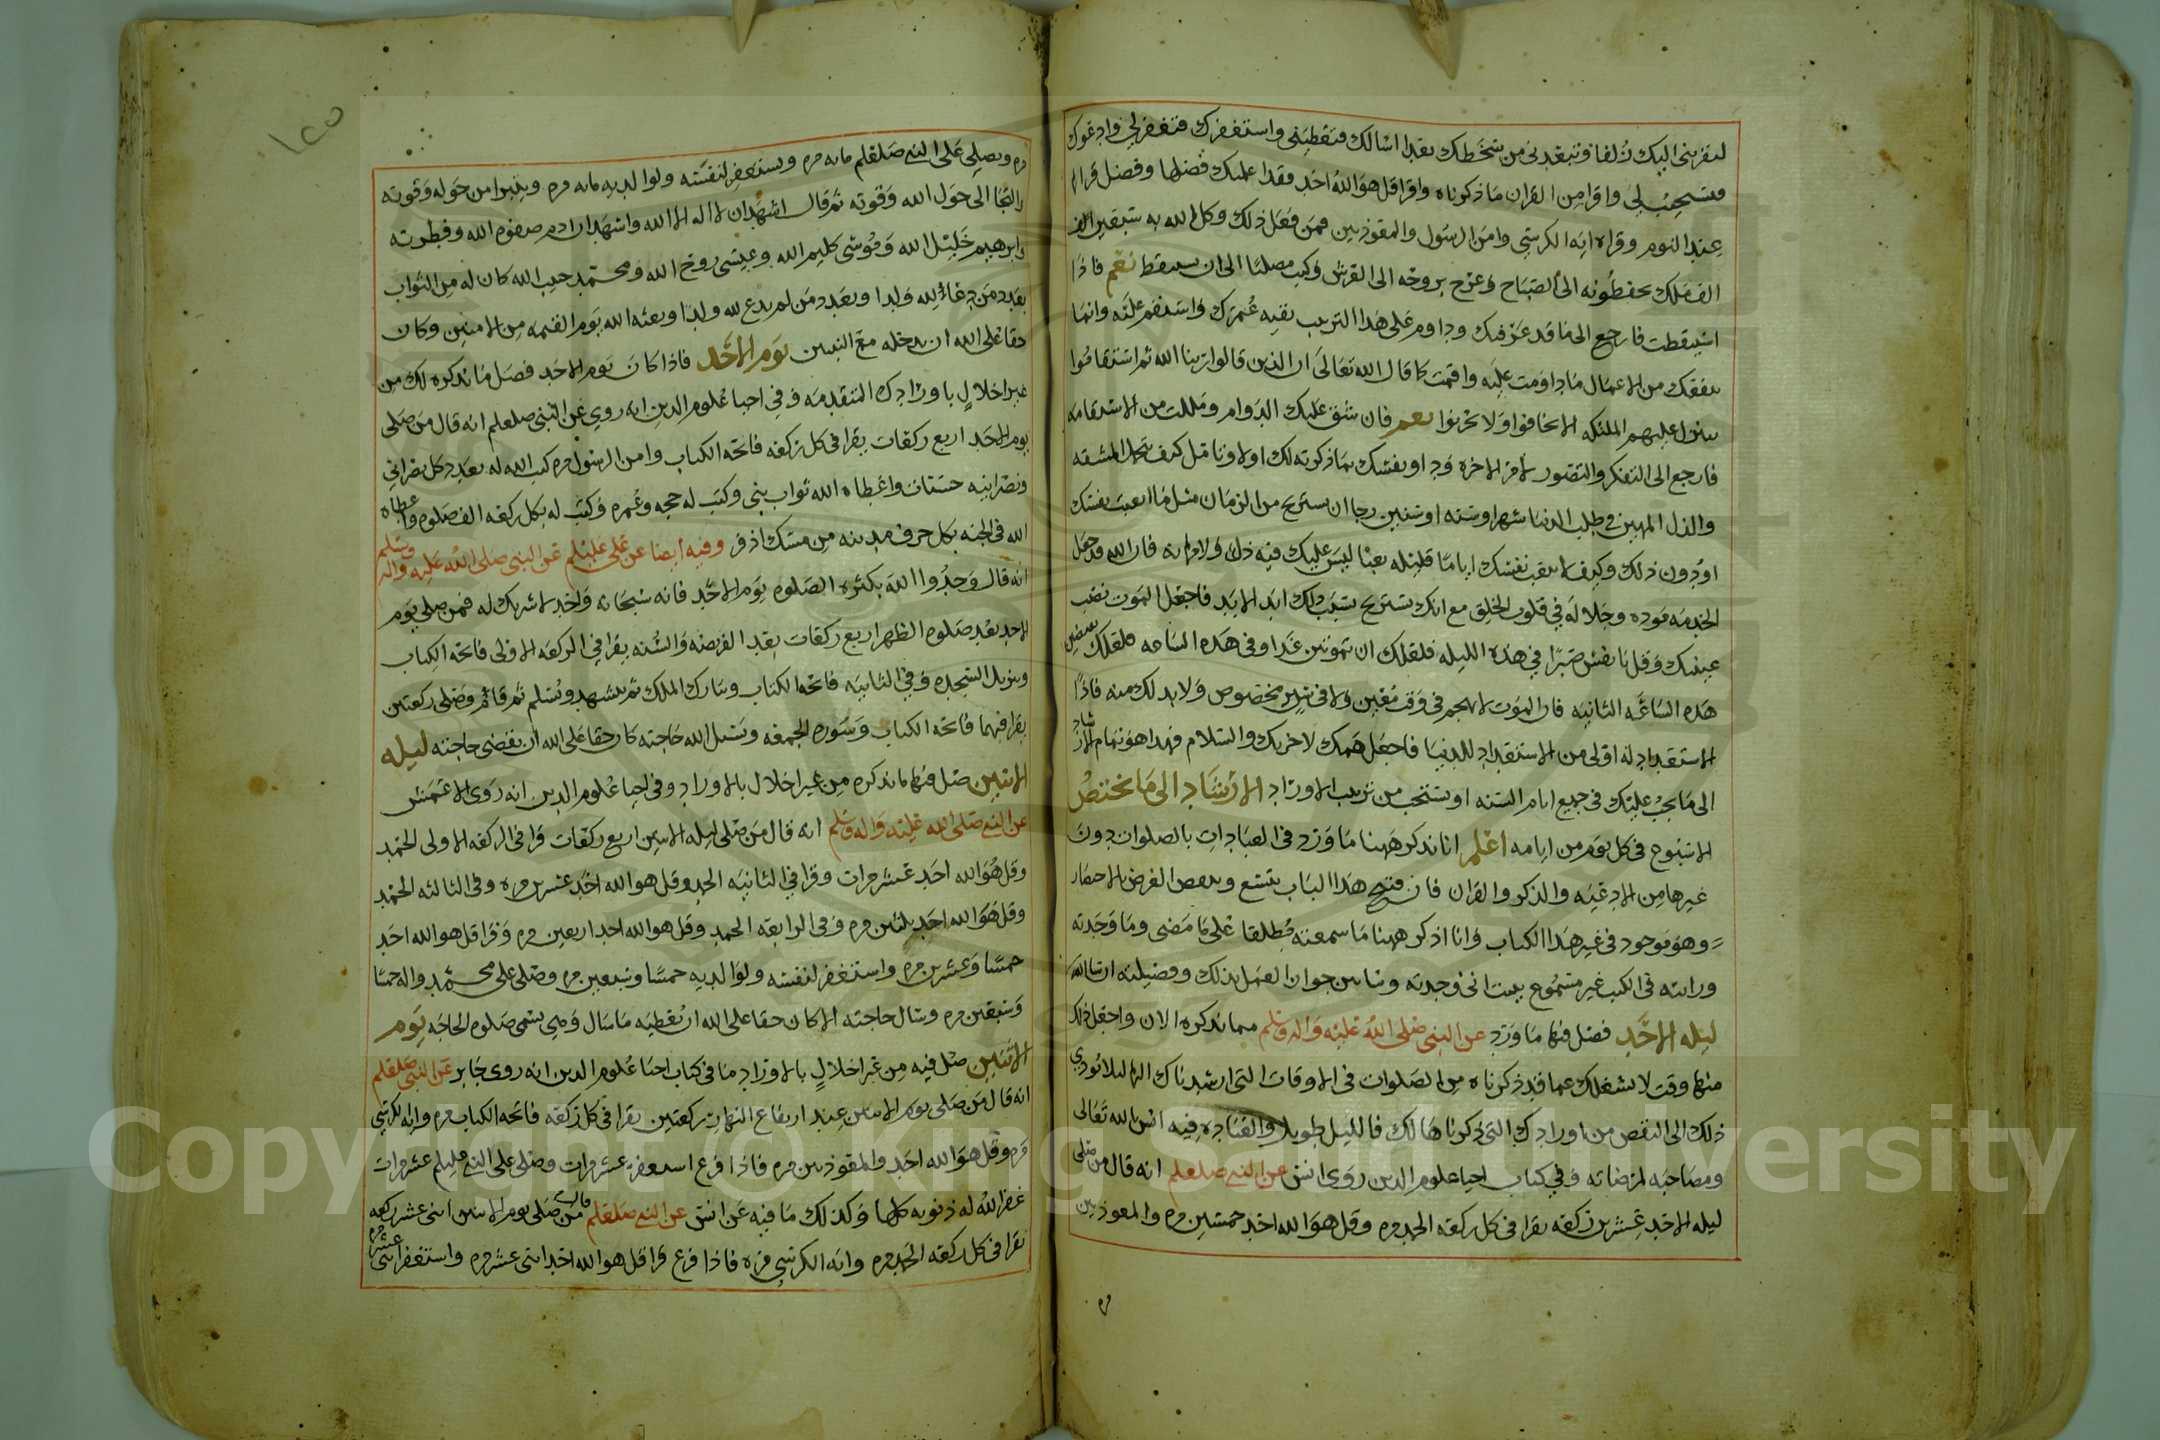 لتقربني اليك زلفا وتبعدني من سخطك بعدا اسالك فتعطيني واستغفرك فتغفر لي وادعوك
فتستجيب لي واقرا من القران ما ذكرناه واقرا قل هو الله احد فقد اعلمتك فضلها وفضل قراتها
عند النوم وقراه ايه الكرسي وامن الرسول والمعوذتين فمن فعل ذلك وكل الله به سبعين الف
الف ملك يحفظونه الى الصباح وعرج بروحه الى العرش وكتب مصليا الى ان يستيقظ نعم فاذا
استيقظت فارجع الى ما قد عرفتك وداوم على هذا الترتيب بقيه عمرك واستقم عليه وانما
ينفعك من الاعمال ما داومت عليه واقمت كما قال الله تعالى ان الذين قالوا ربنا الله ثم استقاموا
تتنزل عليهم الملئكه الا تخافوا ولا تحزنوا نعم فان شق عليك الدوام ومللت من الاستقامه
فارجع الى التفكر والتصور لأمر الاخره وداو نفسك بما ذكرته لك اولا وتامل كيف تتحمل المشقه
والذل المهين في طلب الدنيا شهرا وسنه او سنين رجا ان تستريح من الزمان مثل ما اتعبت نفسك
او دون ذلك وكيف لا تتعب نفسك اياما قليله تعبا ليس عليك فيه ذل ولا مهانه فان الله قد جعل
الخدمه موده وجلاله في قلوب الخلق مع انك تستريح بسبب ذلك ابد الابد فاجعل الموت نصب
عينيك وقل يا نفس صبرا في هذه الليله فلعلك ان تموتين غدا وفي هذه الساعه فلعلك تمضين
هذه الساعه الثانيه فان الموت لا يهجم في وقت معين ولا في سن مخصوص ولا بد لك منه فاذا
الاستعداد له اولى من الاستعداد للدنيا فاجعل همك لاخرتك والسلام فهذا هو تمام الارشاد
الى ما يجب عليك في جميع ايام السنه او يستحب من ترتيب الاوراد الارشاد الى ما يختص
الاسبوع في كل يوم من ايامه اعلم انا نذكر ههنا ما ورد في العبادات بالصلوات دون
غيرها من الادعيه والذكر والقران فان فتح هذا الباب يتسع ونحن الغرض الاحصار
وهو موجود في غير هذا الكتاب وانا اذكر ههنا ما سمعته مطلقا على ما مضى وما وجدته
ورايته في الكتب غير مسموع بينت اني وجدته وتبين جواز العمل بذلك وفضيلته ان شا الله
ليله الاحد فصل فيها ما ورد عن النبي صلى الله عليه واله وسلم مما نذكره الان واجعل ذلك
منها وقت لا يشغلك عما قد ذكرناه من الصلوات في الاوقات التي ارشدناك اليها ليلا تودي
ذلك الى النقص من اورادك التي ذكرناها لك فالليل طويل والعباده فيه انس بالله تعالى
ومصاحبه لمرضاته وفي كتاب احيا علوم الدين روى انس عن النبي صلعلم انه قال من صلى
ليله الاحد عشرين ركعه يقرا في كل ركعه الحمد مره وقل هو الله احد خمسين مره والمعوذتين
مره
مره ويصلي على النبي صلعلم مايه مره ويستغفر لنفسه ولوالديه مايه مره ويتبرا من حوله وقوته
والتجا الى حول الله وقوته ثم قال اشهد ان لا اله الا الله واشهد ان ادم صفوه الله وفطرته
وابرهيم خليل الله وموسى كليم الله وعيسى روح الله ومحمد حبيب الله كان له من الثواب
بعدد من دعا لله ولدا وبعدد من لم يدع لله ولدا وبعثه الله يوم القيمه من الامنين وكان
حقا على الله ان يدخله مع النبيين يوم الاحد فاذا كان يوم الاحد فصل ما نذكره لك من
غير اخلال باورادك المتقدمه وفي احيا علوم الدين انه روي عن النبي صلعلم انه قال من صلى
يوم الاحد اربع ركعات يقرا في كل ركعه فاتحه الكتاب وامن الرسول مره كتب الله له بعدد كل نصراني
ونصرانيه حسنات واعطاه الله ثواب نبي وكتب له حجه وعمره وكتب له بكل ركعه الف صلوه واعطاه
الله في الجنه بكل حرف مدينه من مسك اذفر وفيه ايضا عن علي عليلم عن النبي صلى الله عليه واله وسلم
انه قال وحدوا الله بكثره الصلوه يوم الاحد فانه سبحانه واحد لا شريك له فمن صلى يوم
الاحد بعد صلوه الظهر اربع ركعات بعد الفريضه والسنه يقرا في الركعه الاولى فاتحه الكتاب
وتنزيل السجده وفي الثانيه فاتحه الكتاب وتبارك الملك ثم تشهد وسلم ثم قام وصلى ركعتين
يقرا فيهما فاتحه الكتاب وسوره الجمعه وسئل الله حاجته كان حقا على الله ان يقضي حاجته ليله
الاثنين صل فيها ما نذكره من غير اخلال بالاوراد وفي احيا علوم الدين انه روى الاعمش
عن النبي صلى الله عليه واله وسلم انه قال من صلى ليله الاثنين اربع ركعات قرا في الركعه الاولى الحمد
وقل هو الله احد عشر مرات وقرا في الثانيه الحمد وقل هو الله احد عشرين مره وفي الثالثه الحمد
وقل هو الله احد ثلثين مره وفي الرابعه الحمد وقل هو الله احد اربعين مره وقرا قل هو الله احد
خمسا وعشرين مره واستغفر لنفسه ولوالديه خمسا وسبعين مره وصلى على محمد واله خمسا
وسبعين مره وسال حاجته الا كان حقا على الله ان يعطيه ما سال وهي تسمى صلوه الحاجه يوم
الاثنين صل فيه من غير اخلال بالاوراد ما في كتاب احيا علوم الدين انه روى جابر عن النبي صلعلم
انه قال من صلى يوم الاثنين عند ارتفاع النهار ركعتين يقرا في كل ركعه فاتحه الكتاب مره وايه الكرسي
مره وقل هو الله احد والمعوذتين مره فاذا فرغ استغفر عشر مرات وصلى على النبي عليلم عشر مرات
غفر الله له ذنوبه كلها وكذلك ما فيه عن انس عن النبي صلعلم قال من صلى يوم الاثنين اثنى عشر ركعه
يقرا في كل ركعه الحمد مره وايه الكرسي مره فاذا فرغ قرا قل هو الله احد اثنى عشر مره واستغفر اثنى عشر مره
Copyright © King Saud University